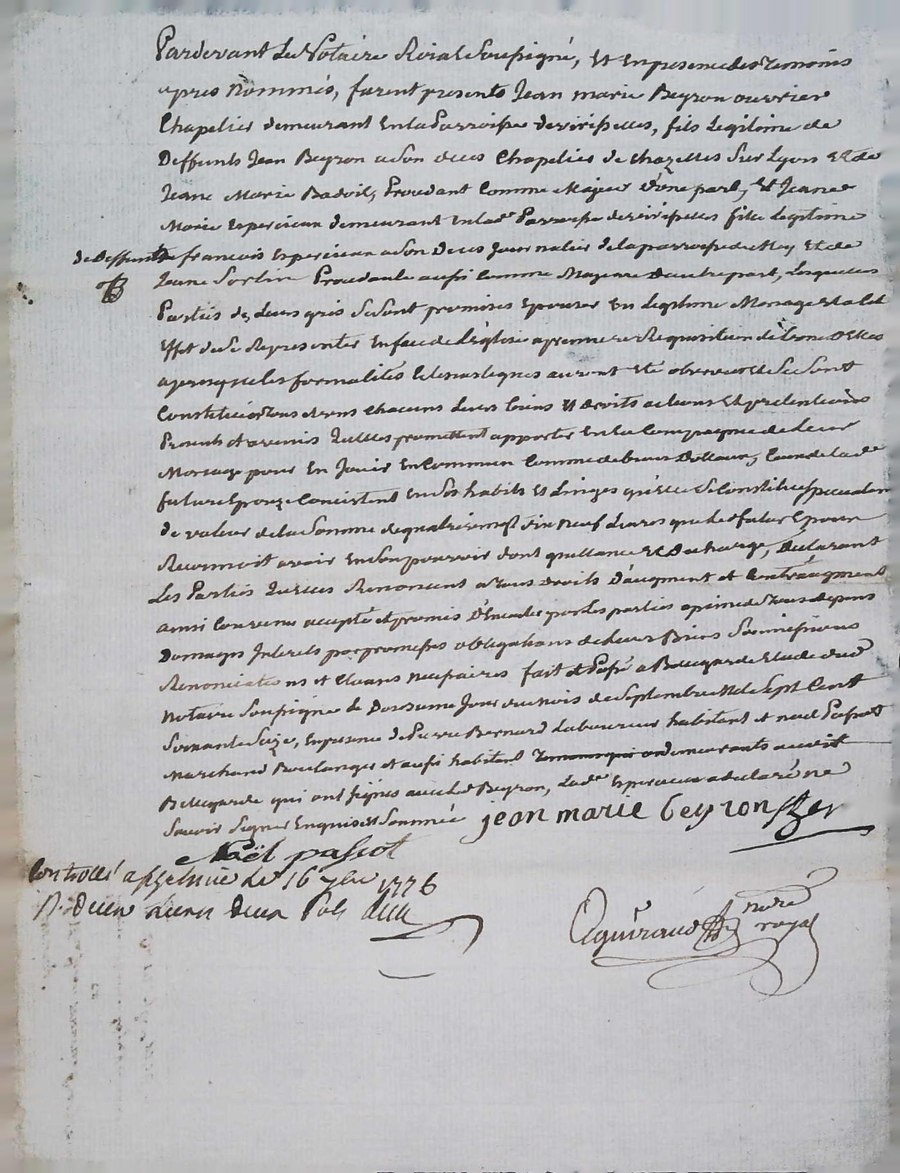 Pardevant Le Notaire Roial Soussigné, Et En presence des Temoins
apres Nommés, furent presents Jean marie Beyron ouvrier
Chapelier demeurant En la Parroisse de virisselles, fils Legitime de
Deffunts Jean Beyron a Son deces Chapelier de Chazelles Sur Lyon Et de
Jeane Marie Badoil, Procedant Comme Majeur d'une part, Et Jeane
Marie Espercieu demeurant En lad.e Parroisse de virisselles fille Legitime
de Deffunts francois Espercieu a Son Deces Journalier de la parroisse de Et de
Jeane Procedante aussi Comme Majeure D'autre part, Lesquelles
Parties de Leurs grés Se Sont promises Epouser En Legitime Mariage Et a Cet
Effet de Se Representer En face de L'église a premiere Requisition de L'une D'Elles
apres que les formalités auront Eté observées Se Sont
Constitués Tous chacuns Leurs biens Et droits actions Et pretentions
Presents et avenir promettent apporter En la Compagnie de Leur
Mariage pour En Jouir En Commun Comme de biens Dottaux, Ceux de lad.e
future Epouze Consistent En Ses habits Et Linges qu'Elle Se Constitue
de valeur de la Somme de quatre vingt dix neuf Livres que led.t futur Epoux
Reconnoit avoir En Son pouvoir dont quittance Et Decharge, Declarant
Les Parties qu'elles Renoncent a Tous Droits D'augment et Contreaugment
ainsi Convenu accepté et promis D'Executer par Les parties a peine de Tous depens
Domages Interets par promesses obligations de Leurs Biens Soumissions
Renonciations et Clauses necessaires fait et Passé a Bellegarde Etude dud.t
Notaire Soussigné Le Douzieme Jour du mois de Septembre Mil Sept Cent
Soixante Seize, En presence de Pierre Bernard Laboureur habitant et noel Pascot
Marchand Boulanger et aussi habitant
Bellegarde qui ont Signés avec led.t Beyron, Lad.e Espercieu a declaré ne
Savoir Signer Enquise et Sommée jean marie beyron
Noël pascot
Controllé a le 16 7bre 1776
R. Deux Livres Deux Sols
Aguiraud nore
royal